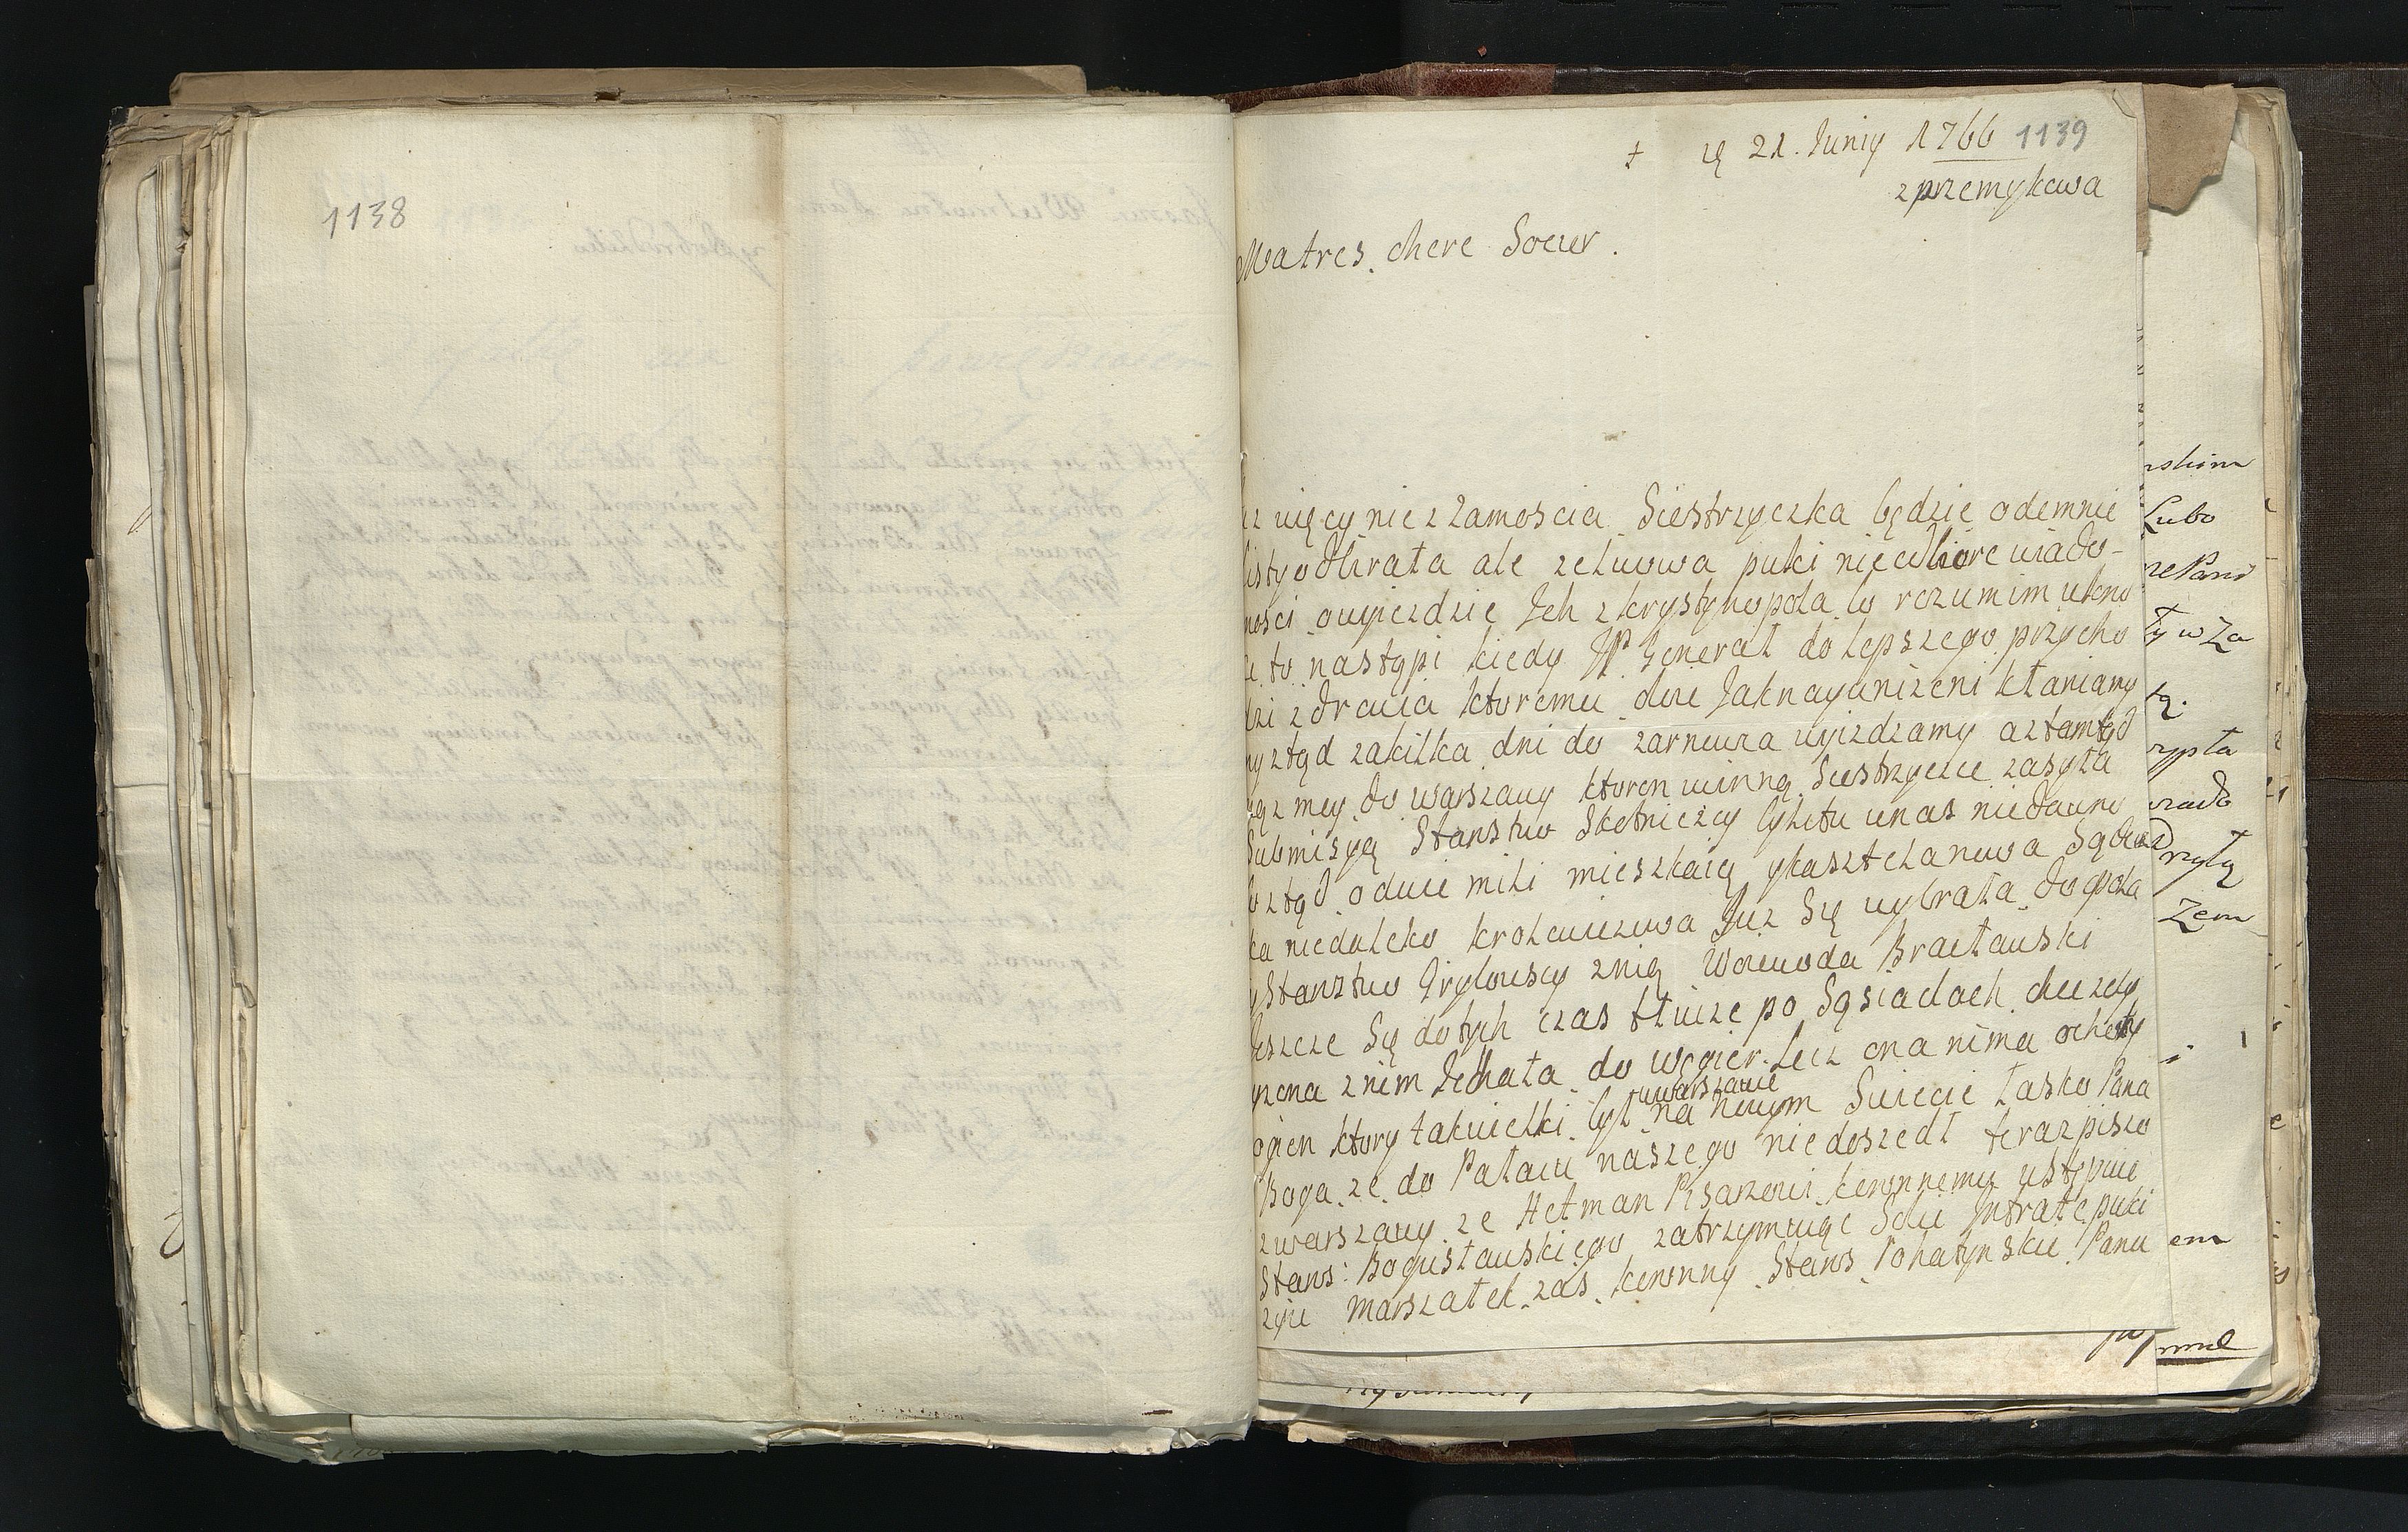 1138

‡ 21. Juniy 1766 1139
z przemykowa
Matres. chere Soeur.
więcy nie z Zamoscia Siestrzyczka będzie odemnie
listy odbirała ale zeluwowa puki nie odbiore wiado-
mosci owyiezdzie Ich z krystynopola co rozumim
to nastąpi kiedy JP Generał do lepszego przycho
dzi zdrowia ktoremu oboie Jaknayunizeni kłaniamy
my ztąd zakilka dni do zarnowca wyizdzamy aztamtąd
mąz mey do warszawy ktoren winną Siestrzyczce zasyła
Submisyą Stanstwo Skotniczcy byli tu unas niedawno
ztąd odwie mili mieszkaią ykasztelanowa Sądecka
niedaleko krolewiczowa Juz Się wybrała dopola
yStanztwo Grybowscy znią Woiewoda Bracławski
Jeszcze Się dotych czas tłucze po Sąsiadach chcezeby
yzona znim Jechała do węgier. Lecz ona nima ochoty
ogien ktory takwielki był na nowym Swiecie łasko Pana
wwarszawie
Boga ze do Pałacu naszego niedoszedł teraz piszo
zwarszawy ze Hetman Pisarzowi koronnemu ustępuie
Stans: Bogusławskiego zatrzymuiąc Sobie Jntrate puki
zyie Marszałek zas koronny Stans Rohatynskie Panu
skim
Lubo
Ty w Za
tą.
rypta
wiado
rzytą
Zem
i
em